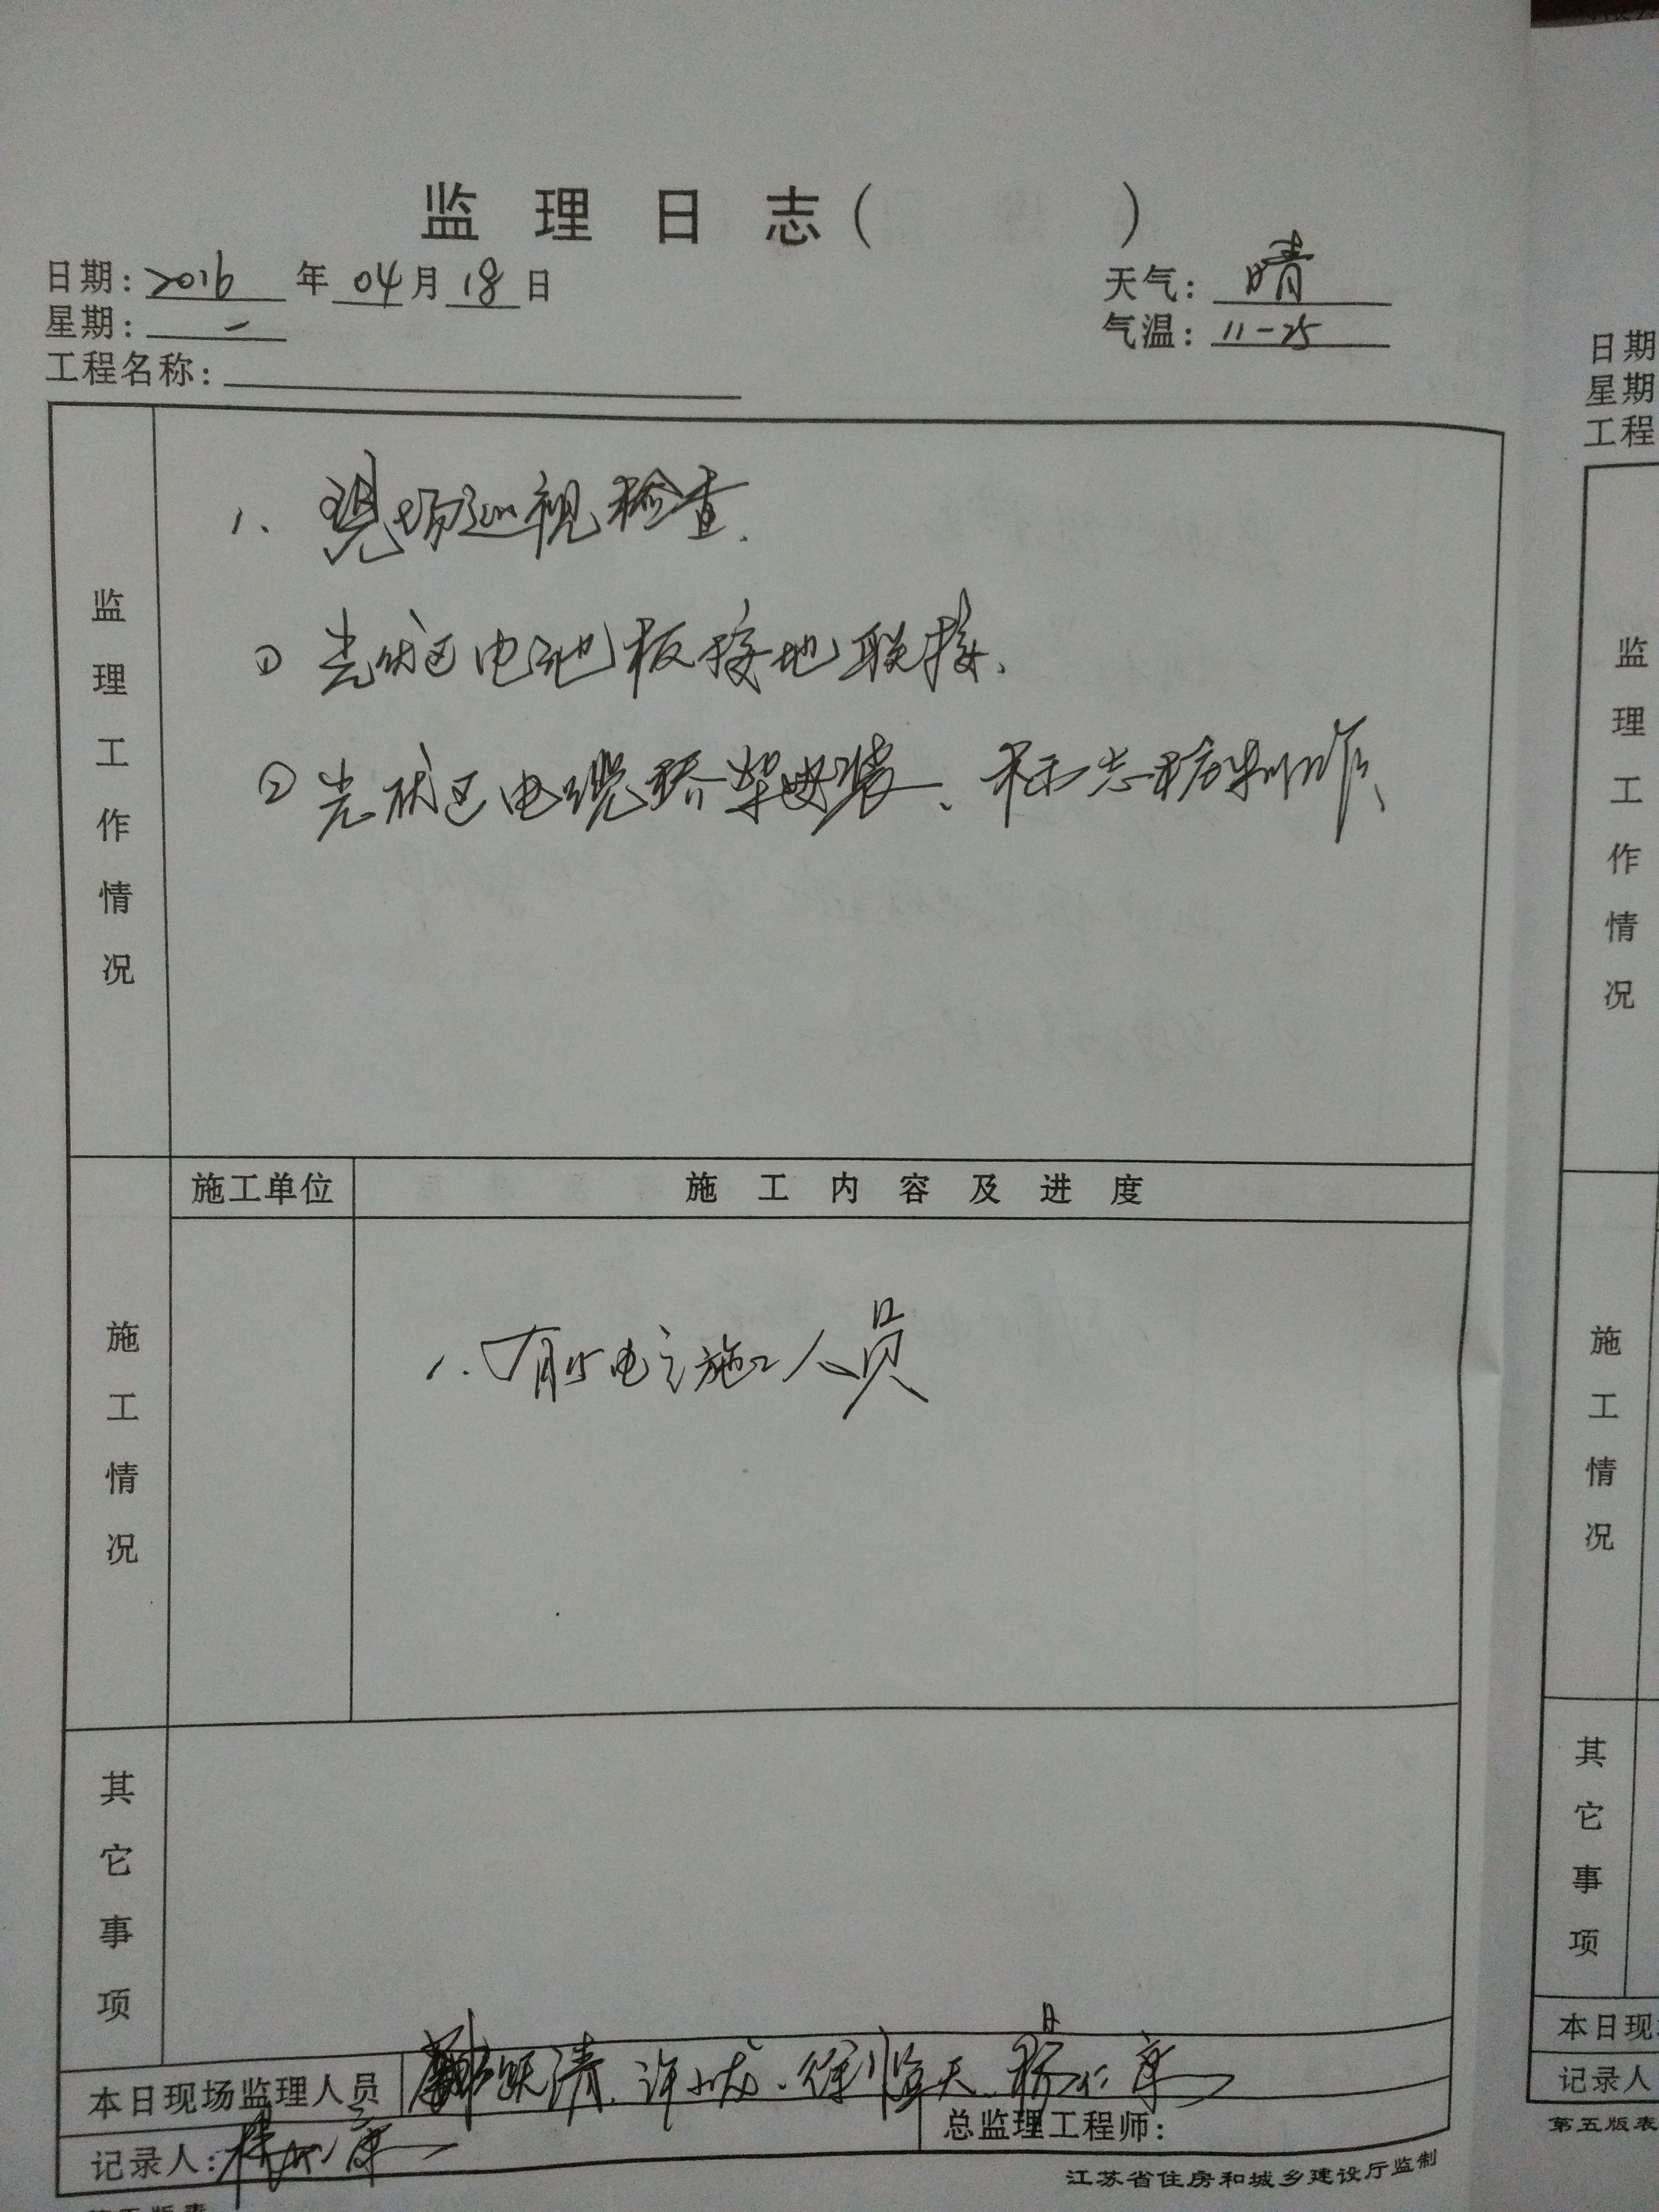 监理日志( )
日期: 2016 年 04 月 18 日 天气: 晴
星期: 一 气温: 11-25
工程名称:
监理工作情况
1、现场巡视检查.
① 光伏区电池板接地联接、
② 光伏区电缆桥架安装、标志榜制作、
施工单位 施工内容及进度
施工情况
1、有 电 施工人员
其它事项
本日现场监理人员 跃清、许小龙、徐 天、杨仁康
记录人: 杨仁康 总监理工程师:
江苏省住房和城乡建设厅监制
日期
星期
工程
监理工作情况
施工情况
其它事项
本日现
记录人
第五版表